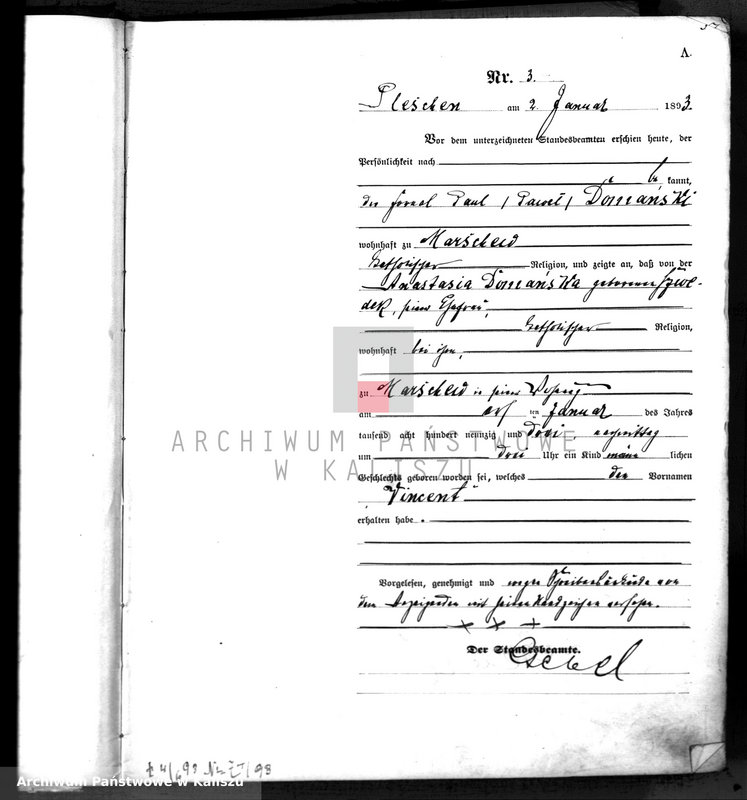 A.
Nr. 3.
Pleschen am 2. Januar 1893.
Vor dem unterzeichneten Standesbeamten erschien heute, der
Persönlichkeit nach
be kannt,
der Paul / Pawel / Domański
wohnhaft zu Marschew
katholischer Religion, und zeigte an, daß von der
Anastasia Domańska geborenen Szwe-
dek, seiner Ehefrau,
katholischer Religion,
wohnhaft bei ihm,
zu Marschew in seiner Wohnung
am ten Januar des Jahres
tausend acht hundert neunzig und drei, nachmittag
um drei Uhr ein Kind männ lichen
Geschlechts geboren worden sei, welches den Vornamen
"Vincent"
erhalten habe.
Vorgelesen, genehmigt und wegen von
dem Anzeigenden mit seinem Handzeichen versehen.
+ + +
Der Standesbeamte.
ARCHIWUM PAŃSTWOWE
W KALISZU
Archiwum Państwowe w Kaliszu